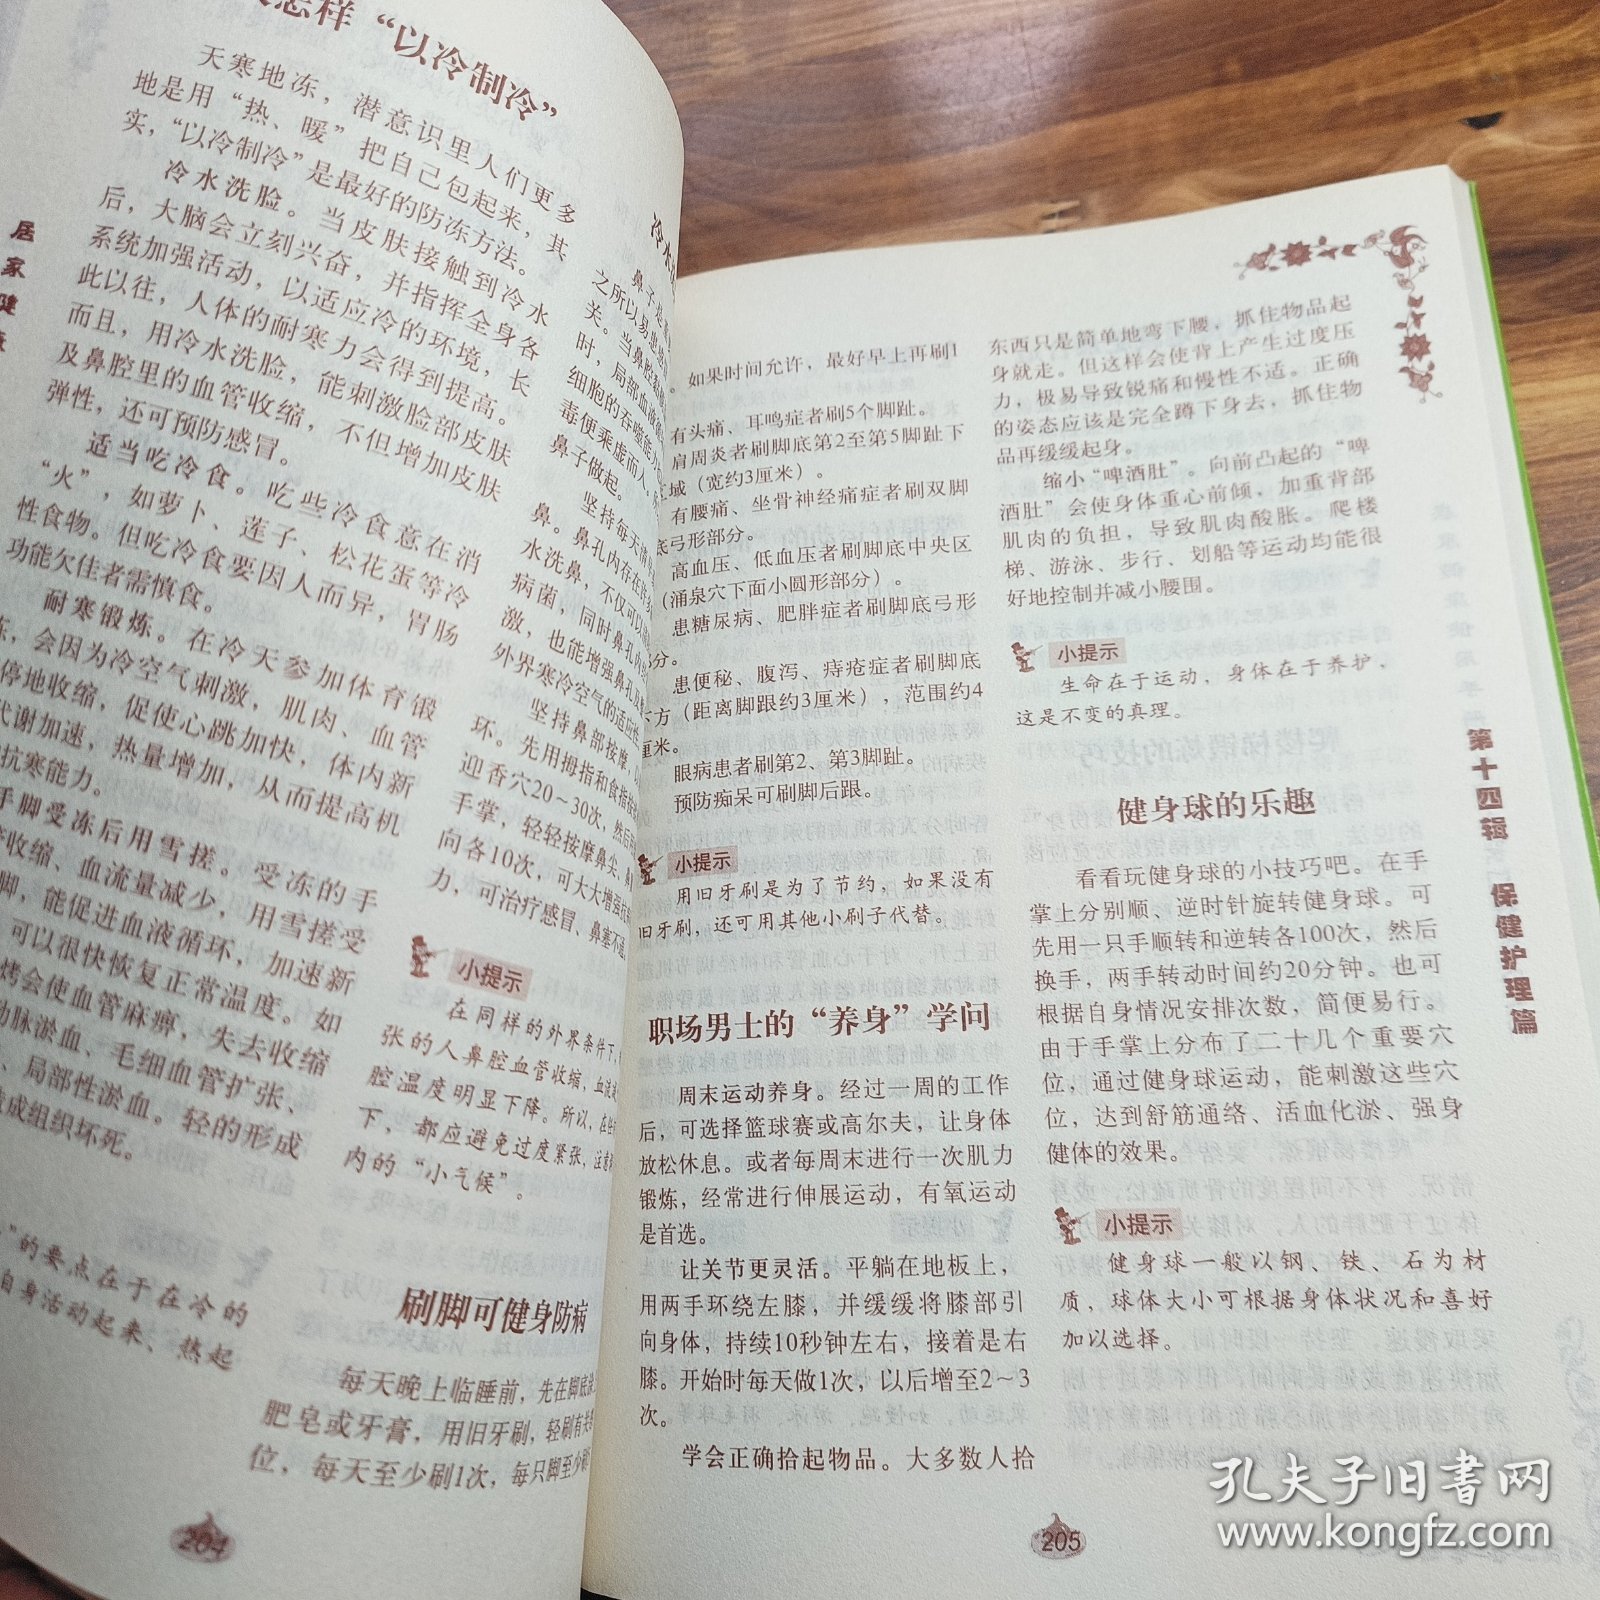 怎样“以冷制冷”
天寒地冻，潜意识里人们更多
地是用“热、暖”把自己包起来，其
实，“以冷制冷”是最好的防冻方法。
冷水洗脸。当皮肤接触到冷水
后，大脑会立刻兴奋，并指挥全身各
系统加强活动，以适应冷的环境，长
此以往，人体的耐寒力会得到提高。
而且，用冷水洗脸，能刺激脸部皮肤
及鼻腔里的血管收缩，不但增加皮肤
弹性，还可预防感冒。
适当吃冷食。吃些冷食意在消
“火”，如萝卜、莲子、松花蛋等冷
性食物。但吃冷食要因人而异，胃肠
功能欠佳者需慎食。
耐寒锻炼。在冷天参加体育锻
，会因为冷空气刺激，肌肉、血管
停地收缩，促使心跳加快，体内新
代谢加速，热量增加，从而提高机
抗寒能力。
手脚受冻后用雪搓。受冻的手
收缩、血流量减少，用雪搓受
脚，能促进血液循环，加速新
可以很快恢复正常温度。如
烤会使血管麻痹，失去收缩
动脉淤血、毛细血管扩张、
、局部性淤血。轻的形成
成组织坏死。
”的要点在于在冷的
自身活动起来、热起
居家健康
204
冷水
鼻子是
之所以易患感
关。当鼻腔黏
时，局部血液循
细胞的吞噬能力
毒便乘虚而入。
鼻子做起。
坚持每天清早
鼻。鼻孔内存在许多
水洗鼻，不仅可以
病菌，同时鼻孔内
激，也能增强鼻孔及
外界寒冷空气的适应性
坚持鼻部按摩，
环。先用拇指和食指
迎香穴20～30次，然后
手掌，轻轻按摩鼻尖，
向各10次，可大大增强抗
力，可治疗感冒、鼻塞不通
小提示
在同样的外界条件下，
张的人鼻腔血管收缩，血流
腔温度明显下降。所以，在
下，都应避免过度紧张，注意
内的“小气候”。
刷脚可健身防病
每天晚上临睡前，先在脚底涂
肥皂或牙膏，用旧牙刷，轻刷有关
位，每天至少刷1次，每只脚至少刷
如果时间允许，最好早上再刷1
有头痛、耳鸣症者刷5个脚趾。
肩周炎者刷脚底第2至第5脚趾下
域（宽约3厘米）。
有腰痛、坐骨神经痛症者刷双脚
底弓形部分。
高血压、低血压者刷脚底中央区
（涌泉穴下面小圆形部分）。
患糖尿病、肥胖症者刷脚底弓形
分。
患便秘、腹泻、痔疮症者刷脚底
方（距离脚跟约3厘米），范围约4
厘米。
眼病患者刷第2、第3脚趾。
预防痴呆可刷脚后跟。
小提示
用旧牙刷是为了节约，如果没有
旧牙刷，还可用其他小刷子代替。
职场男士的“养身”学问
周末运动养身。经过一周的工作
后，可选择篮球赛或高尔夫，让身体
放松休息。或者每周末进行一次肌力
锻炼，经常进行伸展运动，有氧运动
是首选。
让关节更灵活。平躺在地板上，
用两手环绕左膝，并缓缓将膝部引
向身体，持续10秒钟左右，接着是右
膝。开始时每天做1次，以后增至2～3
次。
学会正确拾起物品。大多数人拾
东西只是简单地弯下腰，抓住物品起
身就走。但这样会使背上产生过度压
力，极易导致锐痛和慢性不适。正确
的姿态应该是完全蹲下身去，抓住物
品再缓缓起身。
缩小“啤酒肚”。向前凸起的“啤
酒肚”会使身体重心前倾，加重背部
肌肉的负担，导致肌肉酸胀。爬楼
梯、游泳、步行、划船等运动均能很
好地控制并减小腰围。
小提示
生命在于运动，身体在于养护，
这是不变的真理。
健身球的乐趣
看看玩健身球的小技巧吧。在手
掌上分别顺、逆时针旋转健身球。可
先用一只手顺转和逆转各100次，然后
换手，两手转动时间约20分钟。也可
根据自身情况安排次数，简便易行。
由于手掌上分布了二十几个重要穴
位，通过健身球运动，能刺激这些穴
位，达到舒筋通络、活血化淤、强身
健体的效果。
小提示
健身球一般以钢、铁、石为材
质，球体大小可根据身体状况和喜好
加以选择。
第十四辑 保健护理篇
205
孔夫子旧书网
www.kongfz.com